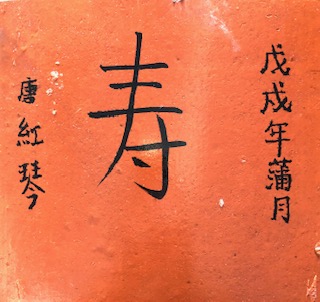 戊戌年蒲月
寿
唐紅琴